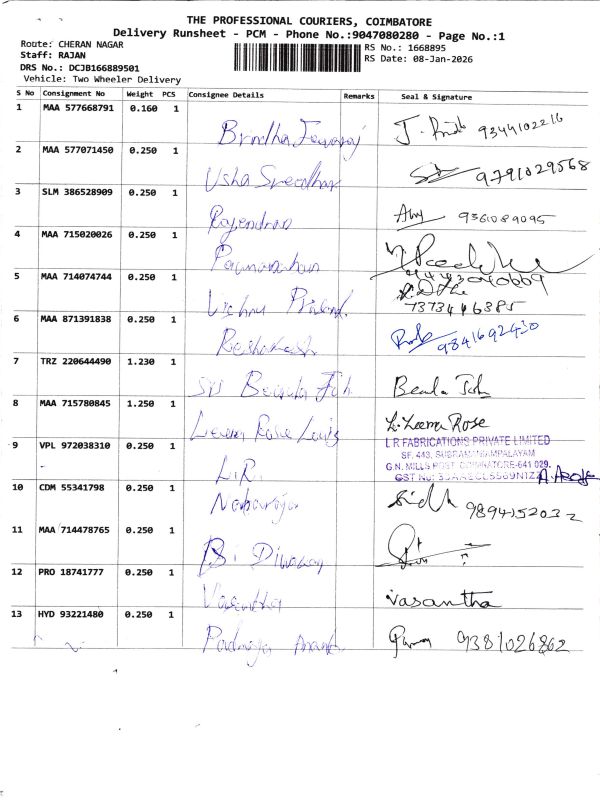 THE PROFESSIONAL COURIERS, COIMBATORE
Delivery Runsheet - PCM - Phone No.:9047080280 - Page No.:1
Route: CHERAN NAGAR
Staff: RAJAN
DRS No.: DCJB166889501
Vehicle: Two Wheeler Delivery
RS No.: 1668895
RS Date: 08-Jan-2026
S No Consignment No Weight PCS Consignee Details Remarks Seal & Signature
1 MAA 577668791 0.160 1
Brndha 9344102216
2 MAA 577071450 0.250 1
Usha Sreedhar 9791029568
3 SLM 386528909 0.250 1
Rajendran 9361089095
4 MAA 715020026 0.250 1
5 MAA 714074744 0.250 1
Vishnu 7373446385
6 MAA 871391838 0.250 1
9841692430
7 TRZ 220644490 1.230 1
Beula Joh
8 MAA 715780845 1.250 1
Leema Rose Louis L. Leema Rose
9 VPL 972038310 0.250 1
L.R. L R FABRICATIONS PRIVATE LIMITED
SF. 443, SUBRAMANIAMPALAYAM
G.N. MILLS POST, COIMBATORE-641 029.
10 CDM 55341798 0.250 1
Nabaroja
11 MAA 714478765 0.250 1
B. Diwakar
12 PRO 18741777 0.250 1
Vasantha vasantha
13 HYD 93221480 0.250 1
Padmaja Anand 9381026862